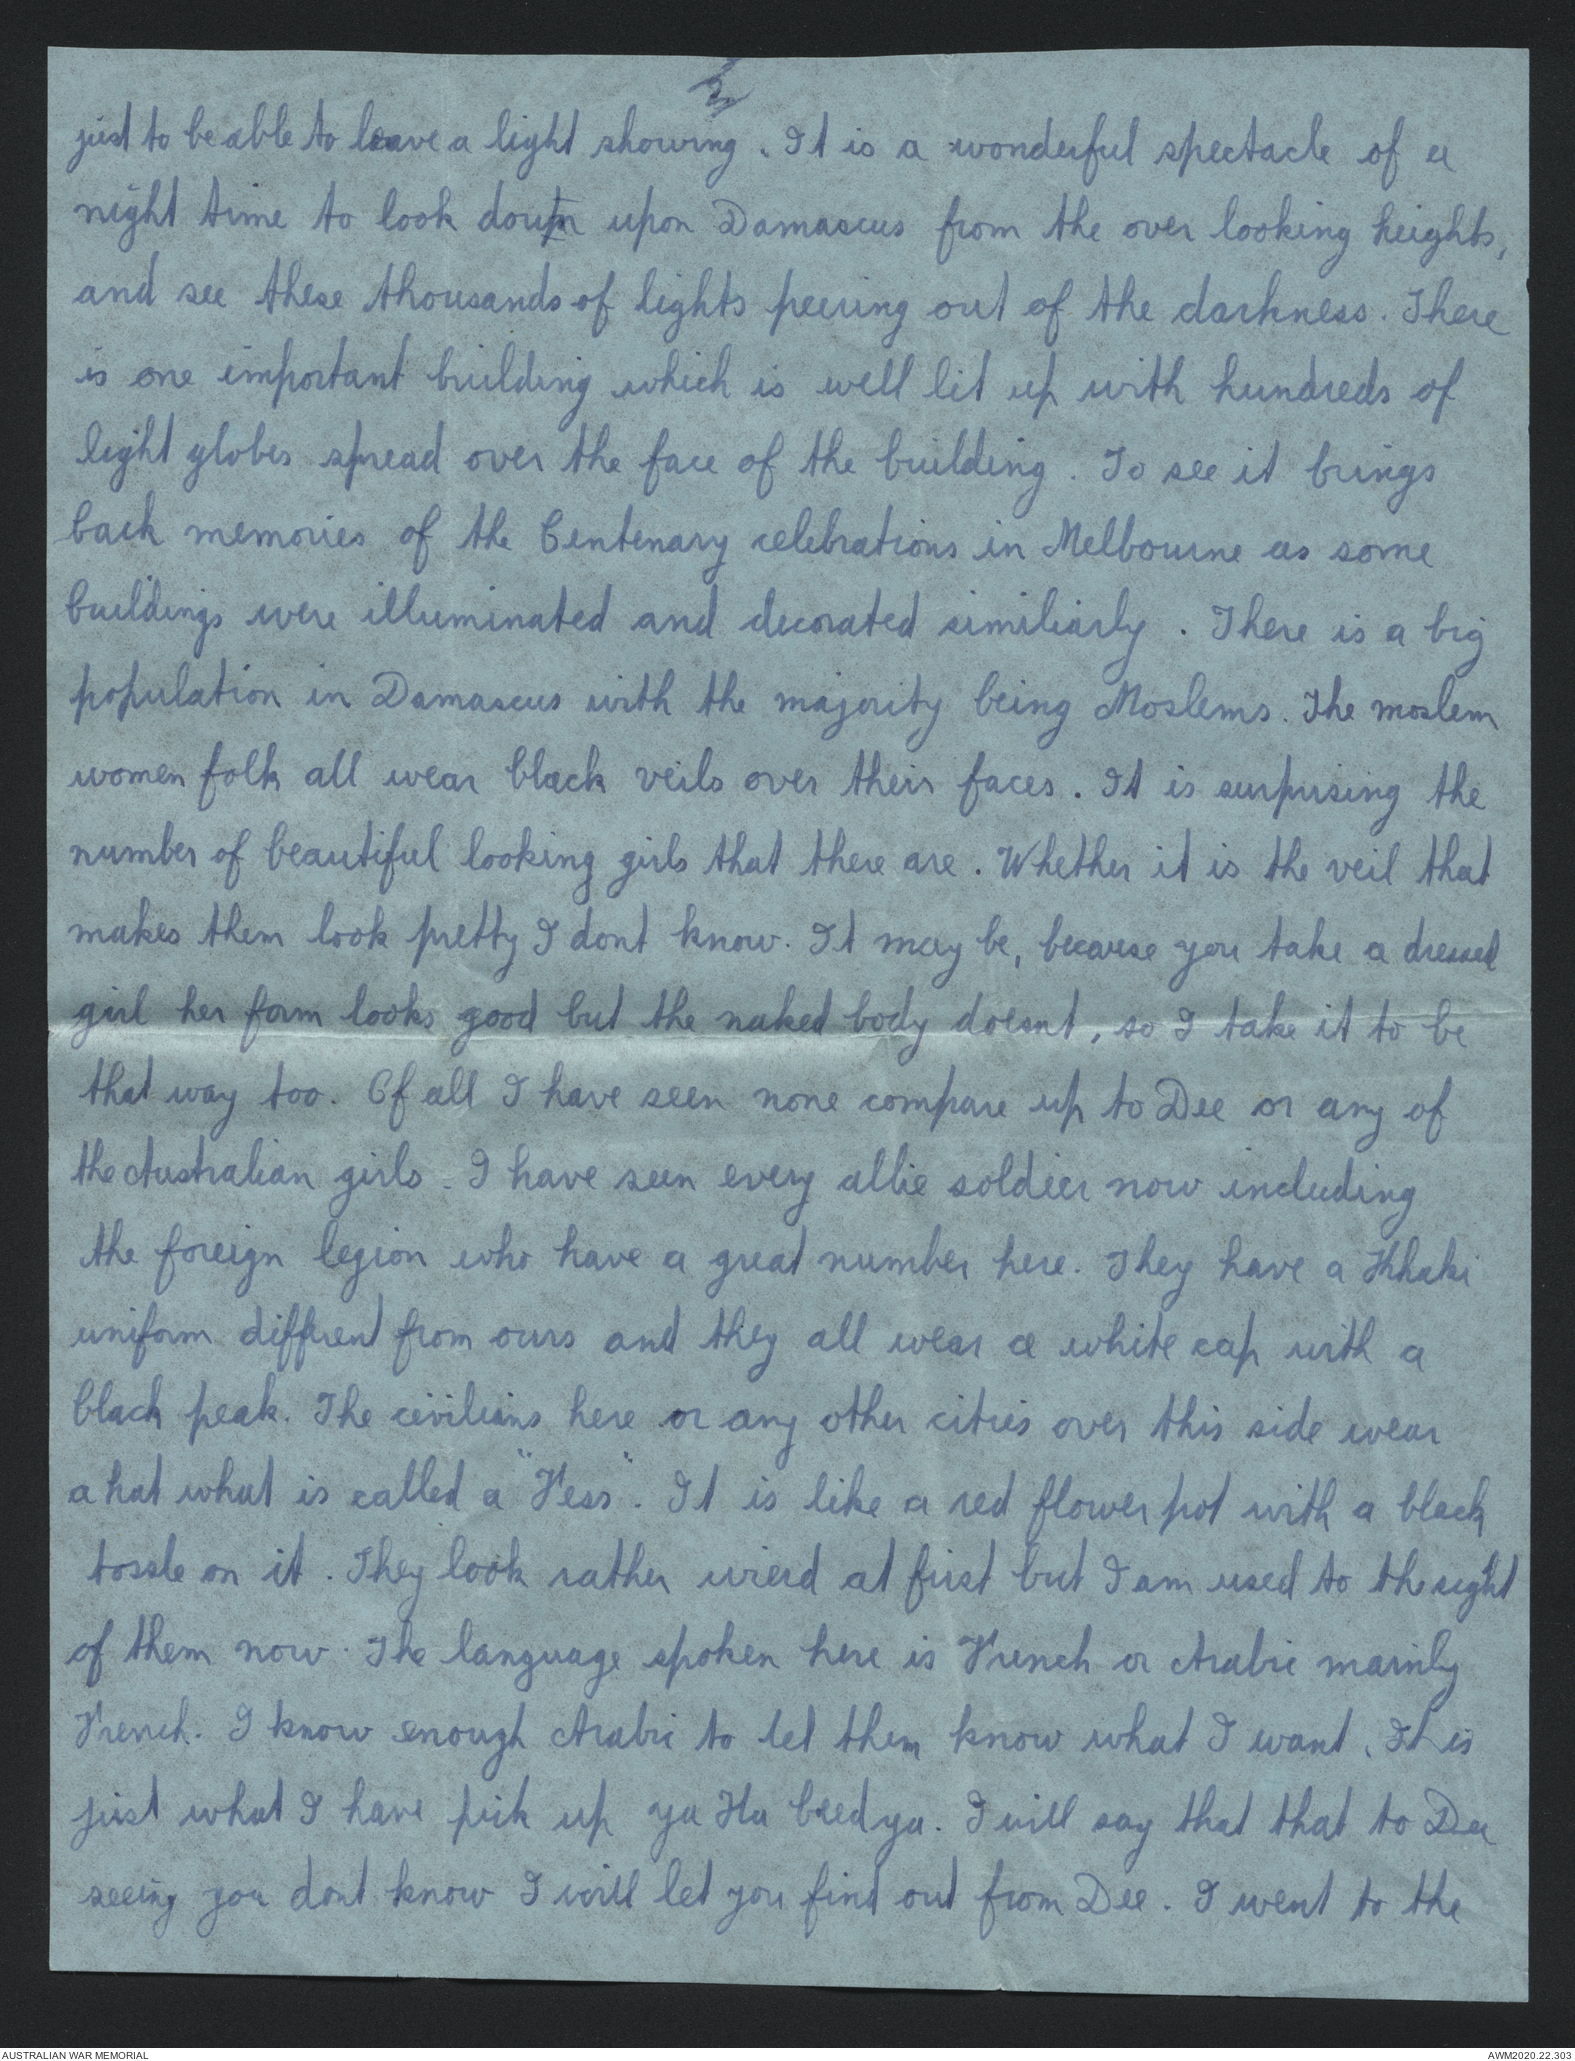 just to be able to leave a light showing. It is a wonderful spectacle of a
night time to look down upon Damascus from the over looking heights,
and see these thousands of lights peering out of the darkness. There
is one important building which is well lit up with hundreds of
light globes spread over the face of the building. To see it brings
back memories of the Centenary celebrations in Melbourne as some
buildings were illuminated and decorated similiarly. There is a big
population in Damascus with the majority being Moslems. The moslem
women folk all wear black veils over their faces. It is surprising the
number of beautiful looking girls that there are. Whether it is the veil that
makes them look pretty I dont know. It may be, because you take a dressed
girl her form looks good but the naked body doesnt, so I take it to be
that way too. Of all I have seen none compare up to Dee or any of
the Australian girls. I have seen every allie soldier now including
the foreign legion who have a great number here. They have a Khaki
uniform diffrent from ours and they all wear a white cap with a
black peak. The civilians here or any other cities over this side wear
a hat what is called a "Fess". It is like a red flower pot with a black
tossle on it. They look rather wierd at first but I am used to the sight
of them now. The language spoken here is French or Arabic mainly
French. I know enough Arabic to let them know what I want. It is
just what I have pick up ya Ha beedya. I will say that that to Dee
seeing you dont know I will let you find out from Dee. I went to the
AUSTRALIAN WAR MEMORIAL
AWM2020.22.303